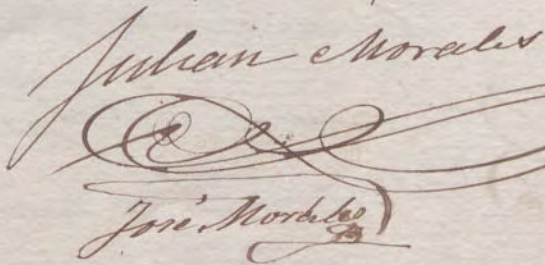 Julian Morales
José Morales